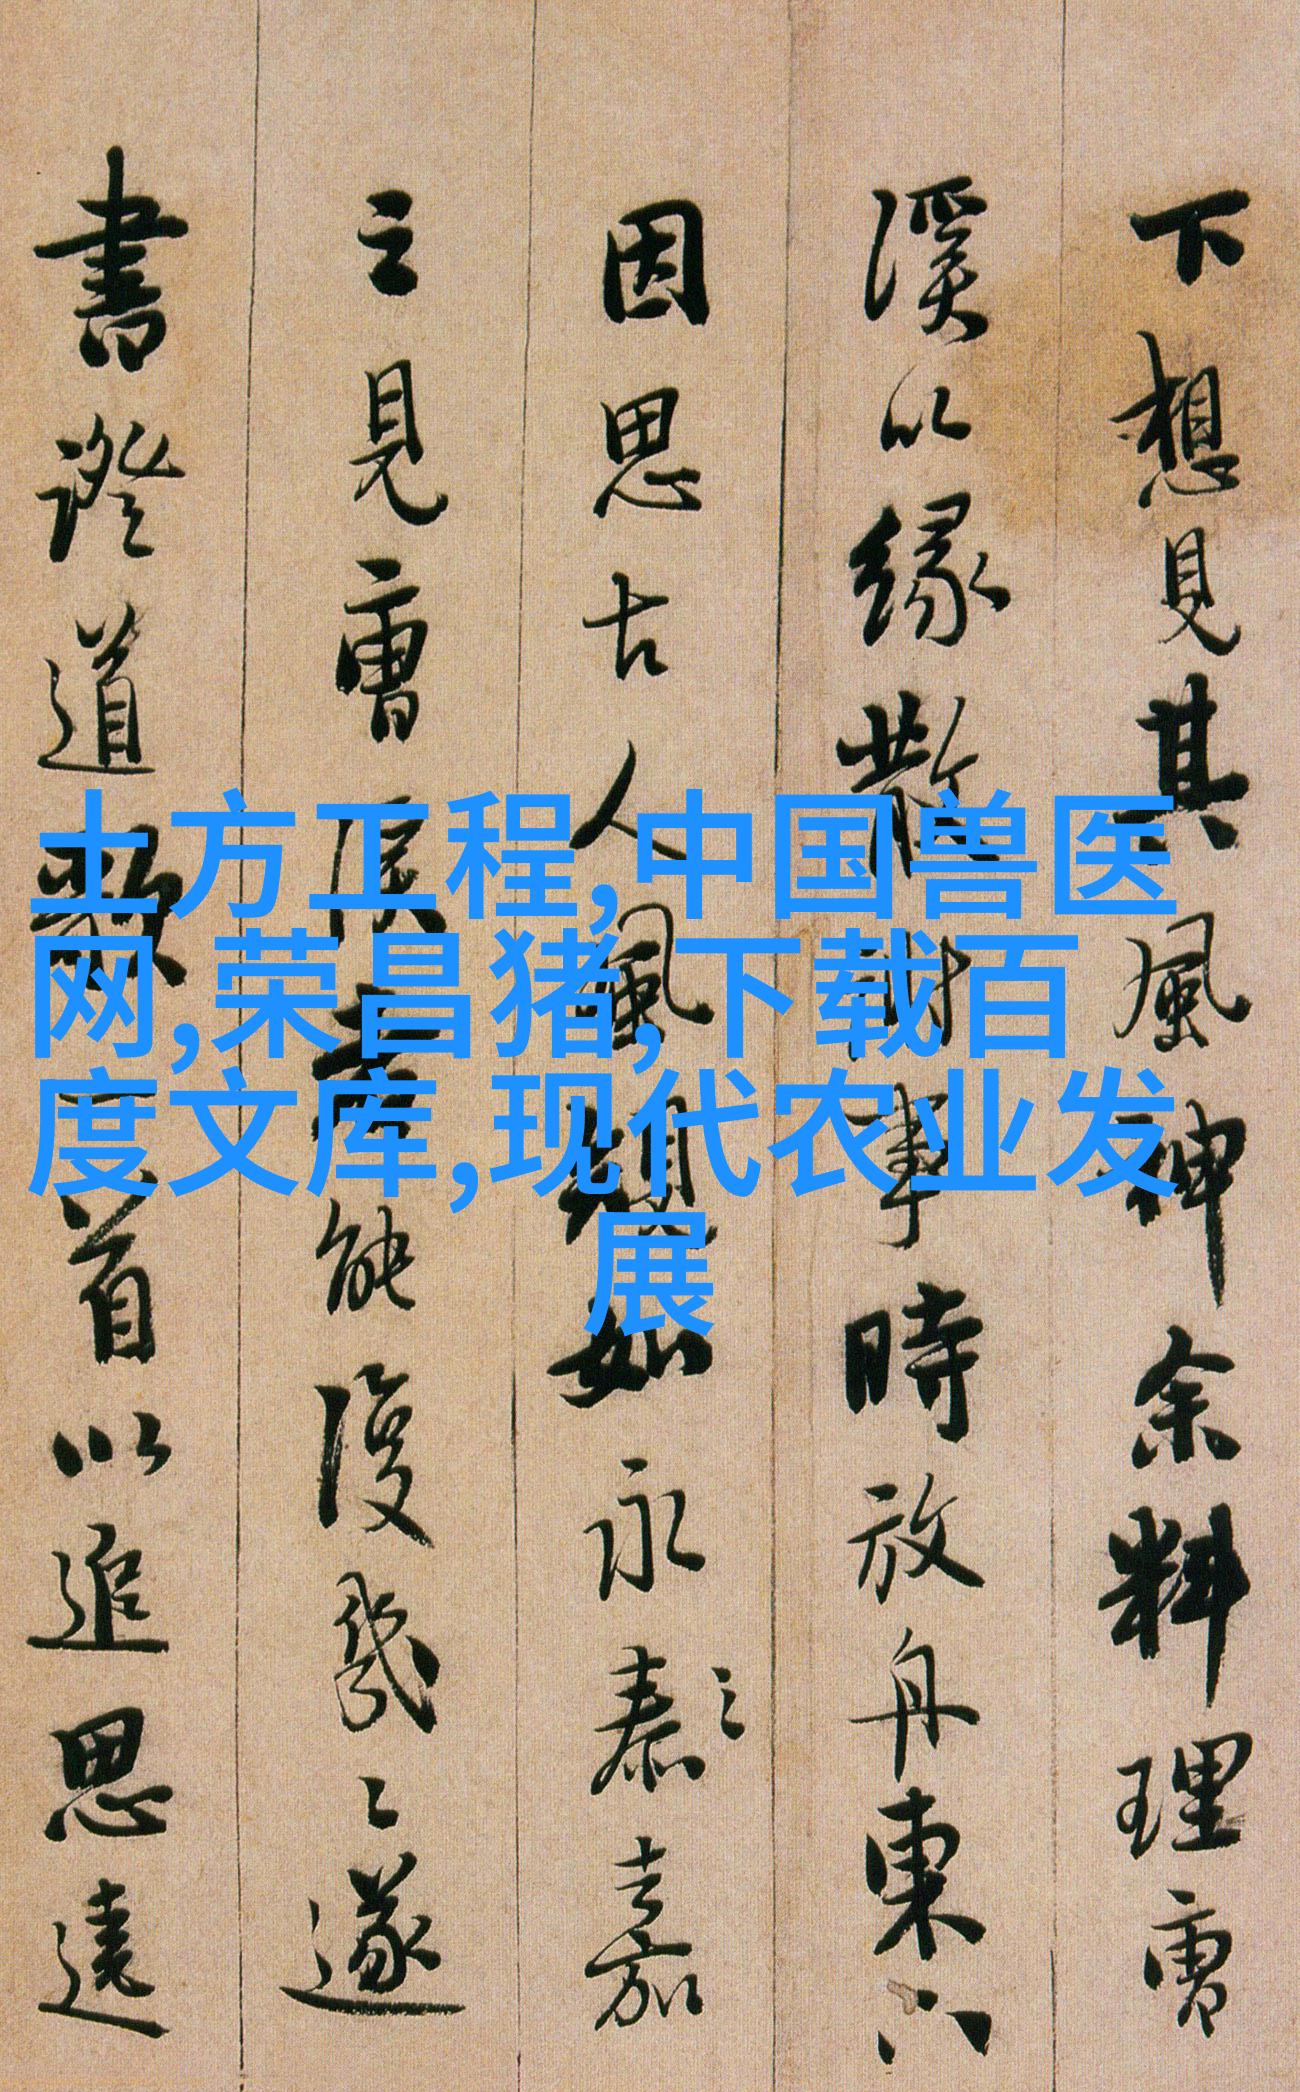 土方工程,中国兽医
网,荣昌猪,下载百
度文库,现代农业发
展
下想見其風神余料理曹
溪以緣散事時放舟東八
因思古人風如永泰嘉
之見曹溪能復幾遂
書證道歌一首以追思遠